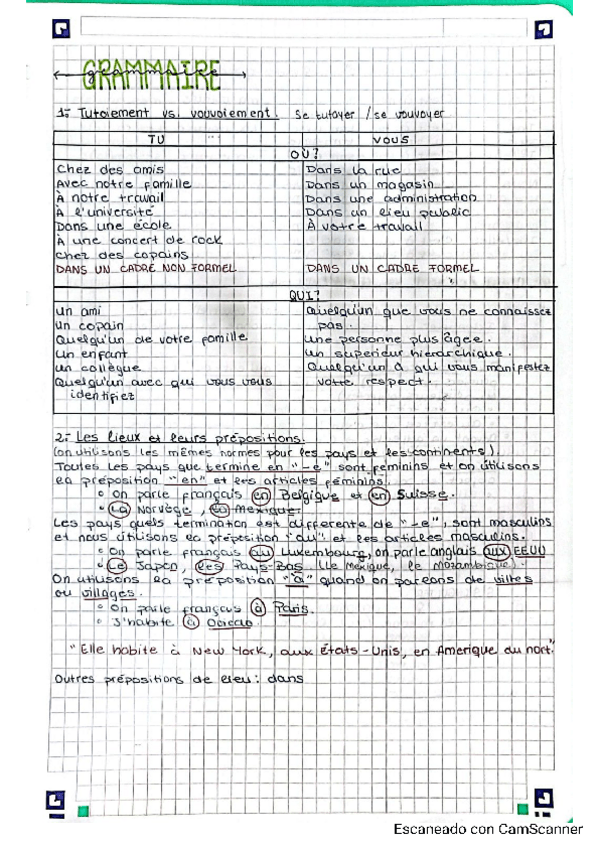 GRAMMAIRE
grammaire
1.- Tutoiement vs. vouvoiement. Se tutoyer / se vouvoyer
TU VOUS
OÙ?
Chez des amis
Avec notre famille
À notre travail
À l'université
Dans une école
À une concert de rock
Chez des copains
DANS UN CADRE NON FORMEL
Dans la rue
Dans un magasin
Dans une administration
Dans un lieu public
À votre travail
DANS UN CADRE FORMEL
QUI?
un ami
un copain
Quelqu'un de votre famille
Un enfant
un collègue
Quelqu'un avec qui vous vous
identifiez
Quelqu'un que vous ne connaissez
pas.
Une personne plus âgée.
Un supérieur hierarchique.
Quelqu'un à qui vous manifestez
votre respect.
2.- Les lieux et leurs prépositions.
(on utilisons les mêmes normes pour les pays et les continents).
Toutes les pays que termine en "-e" sont feminins et on utilisons
la préposition "en" et les articles féminins.
° on parle français en Belgique et en Suisse.
° La Norvège, la Mexique
Les pays quels termination est differente de "-e", sont masculins
et nous utilisons la préposition "au" et les articles masculins.
° On parle français au Luxembourg, on parle anglais aux EEUU
° Le Japon, les Pays-Bas (Le Mexique, le Mozambique).
On utilisons la préposition "à" quand on parlons de villes
ou villages.
° On parle français à Paris.
° J'habite à Oviedo.
"Elle habite à New York, aux États-Unis, en Amerique du nort."
Outres prépositions de lieu: dans
Escaneado con CamScanner